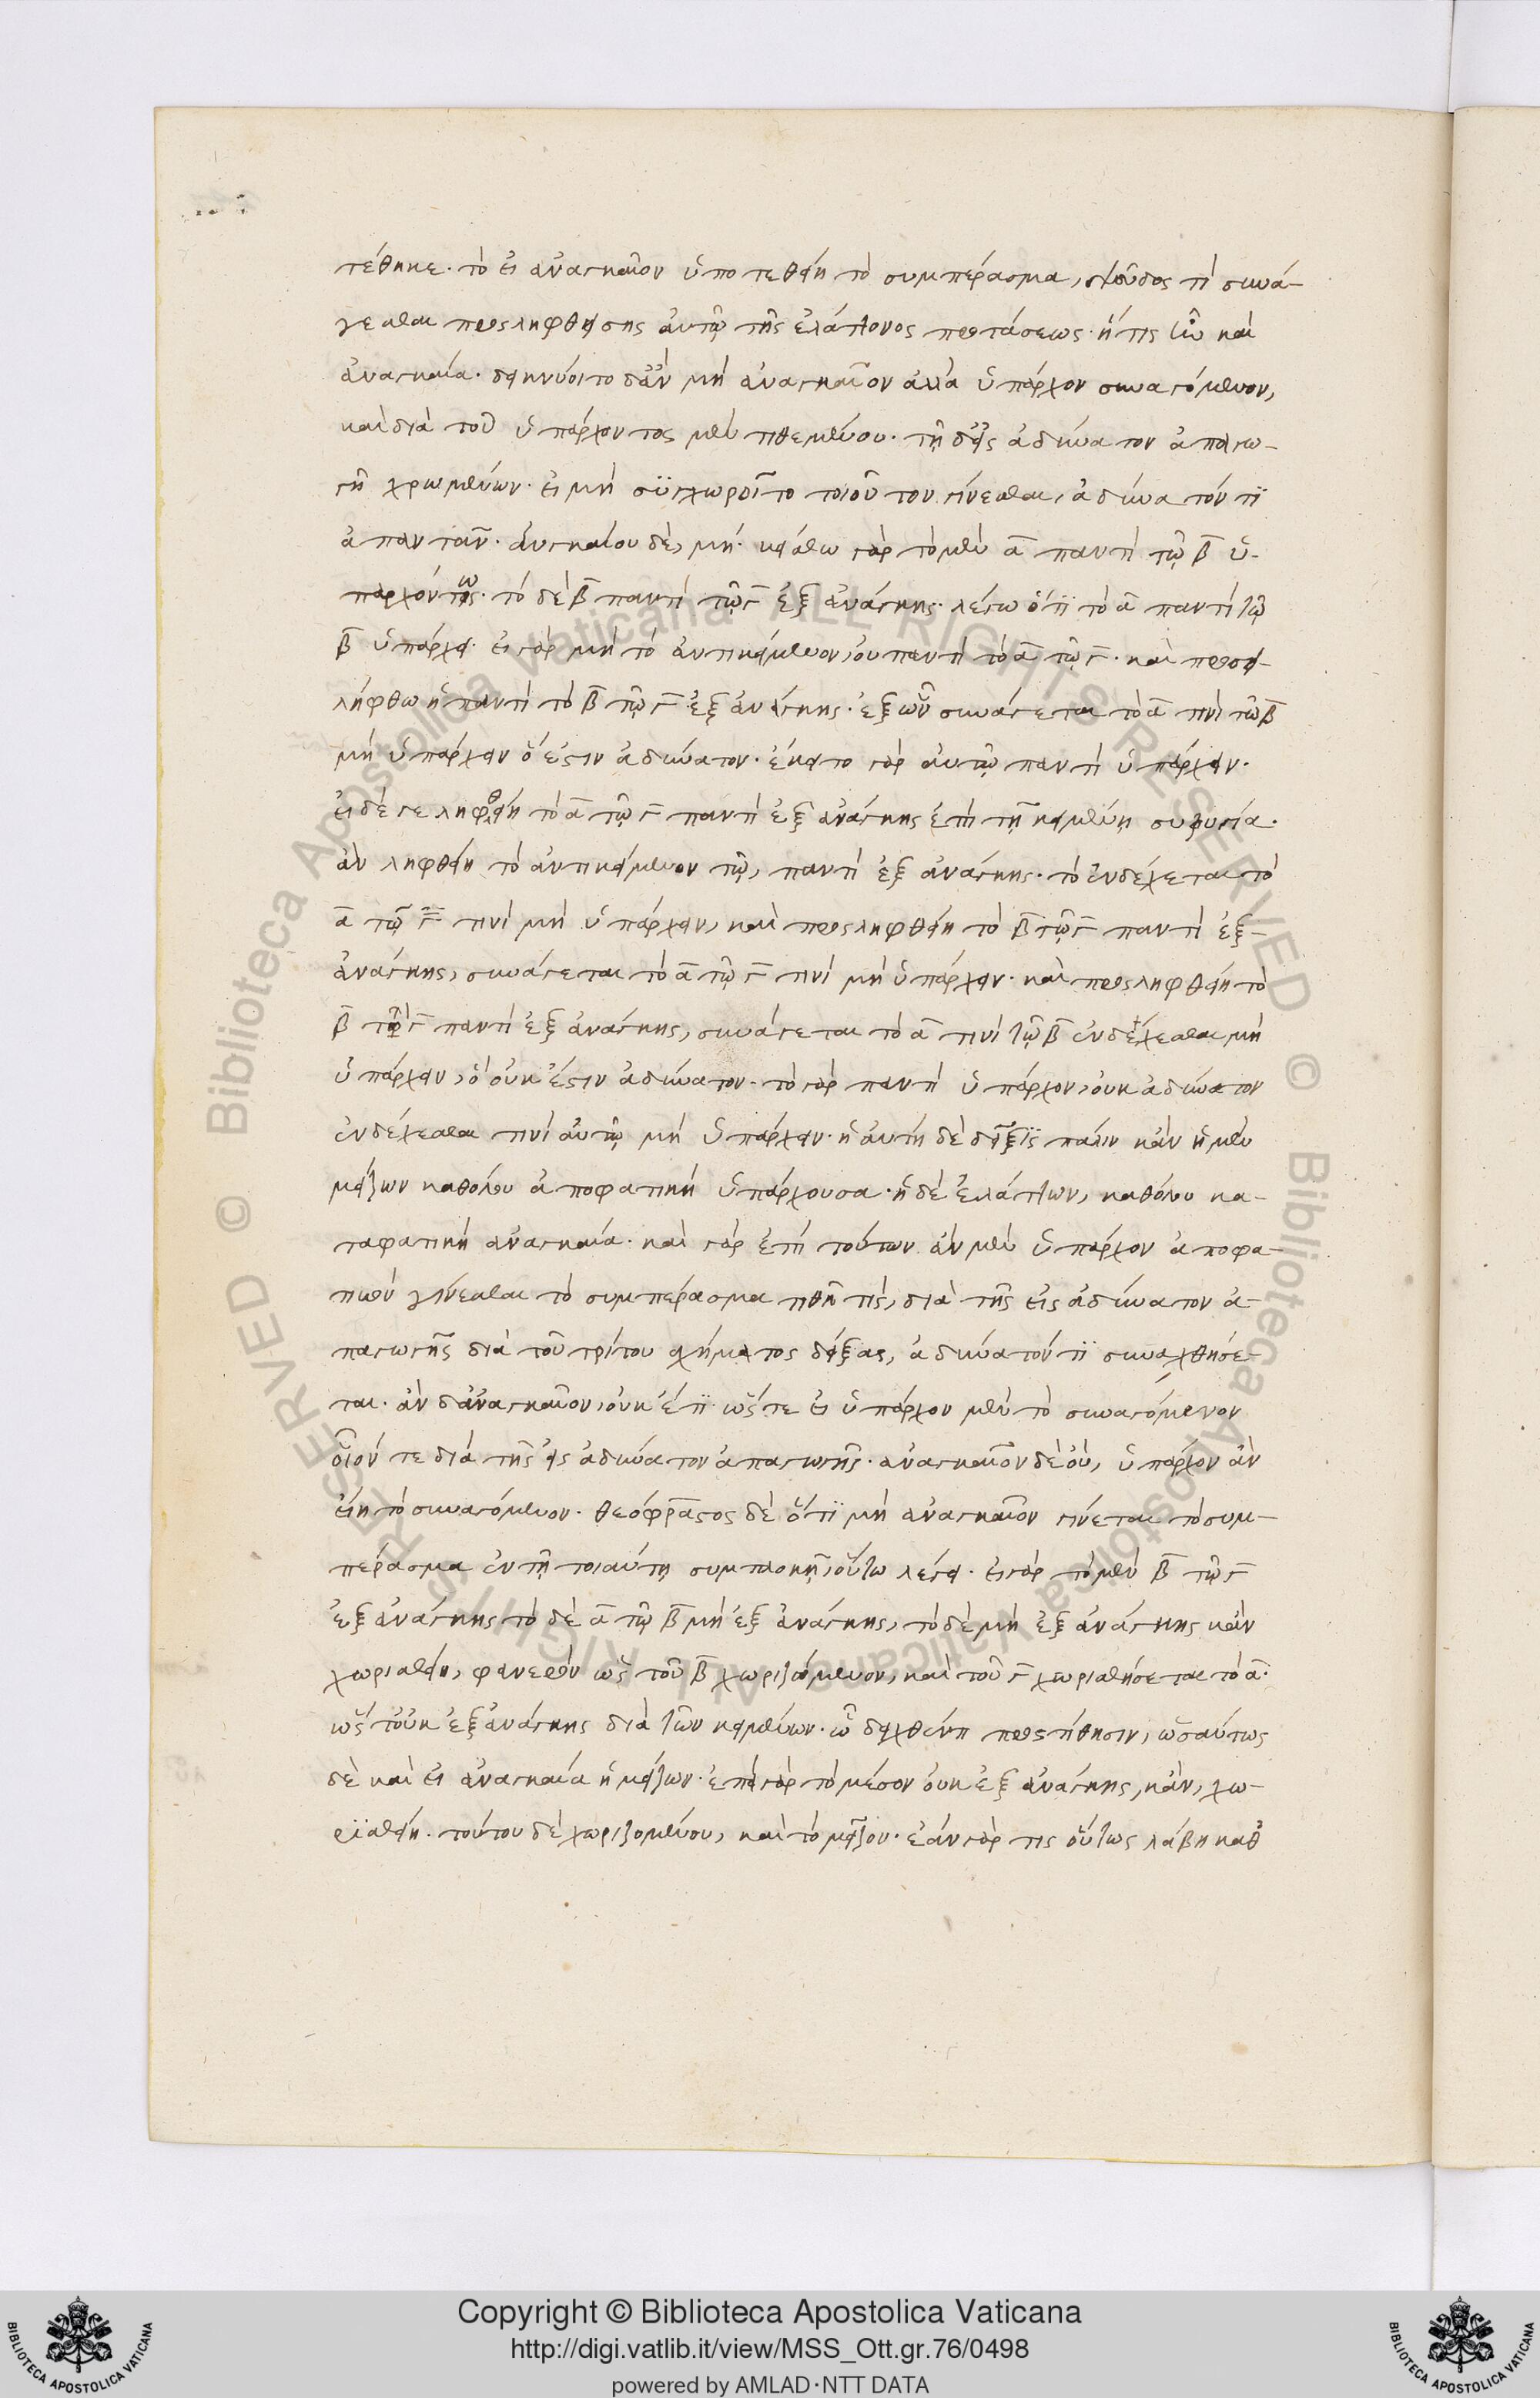 τέθηκε· τὸ εἰ ἀναγκαῖον ὑποτεθείη τὸ συμπέρασμα, ψεῦδός τι συνά-
γεσθαι προσληφθείσης αὐτῷ τῆς ἐλάττονος προτάσεως· ἥτις ἦν καὶ
ἀναγκαία· δεικνύοιτο δ' ἂν μὴ ἀναγκαῖον ἀλλὰ ὑπάρχον συναγόμενον,
καὶ διὰ τοῦ ὑπάρχοντος μὲν τιθεμένου· τῇ δ' εἰς ἀδύνατον ἀπαγω-
γῇ χρωμένων· εἰ μὴ συγχωροῖτο τοιοῦτον γίνεσθαι, ἀδύνατόν τι
ἀπαντᾶν· ἀναγκαίου δὲ, μή· κείσθω γὰρ τὸ μὲν α παντὶ τῷ β ὑ-
παρχόντως· τὸ δὲ β παντὶ τῷ γ ἐξ ἀνάγκης· λέγω ὅτι τὸ α παντὶ τῷ
β ὑπάρχει· εἰ γὰρ μὴ τὸ ἀντικείμενον, οὐ παντὶ τὸ α τῷ γ· καὶ προσει-
λήφθω ἡ παντὶ τὸ β τῷ γ ἐξ ἀνάγκης· ἐξ ὧν συνάγεται τὸ α τινὶ τῷ β
μὴ ὑπάρχειν ὅ ἐστιν ἀδύνατον· ἔκειτο γὰρ αὐτῷ παντὶ ὑπάρχειν·
εἰ δέ γε ληφθείη τὸ α τῷ γ παντὶ ἐξ ἀνάγκης ἐπὶ τῇ κειμένῃ συζυγίᾳ·
ἂν ληφθείη τὸ ἀντικείμενον τῷ, παντὶ ἐξ ἀνάγκης· τὸ ἐνδέχεται τὸ
α τῷ γ τινὶ μὴ ὑπάρχειν, καὶ προσληφθείη τὸ β τῷ γ παντὶ ἐξ-
ἀνάγκης, συνάγεται τὸ α τῷ γ τινὶ μὴ ὑπάρχειν· καὶ προσληφθείη τὸ
β τῷ γ παντὶ ἐξ ἀνάγκης, συνάγεται τὸ α τινὶ τῷ β ἐνδέχεσθαι μὴ
ὑπάρχειν, ὃ οὐκ ἔστιν ἀδύνατον· τὸ γὰρ παντὶ ὑπάρχον, οὐκ ἀδύνατον
ἐνδέχεσθαι τινὶ αὐτῷ μὴ ὑπάρχειν· ἡ αὐτὴ δὲ δεῖξις πάλιν κἂν ἡ μὲν
μείζων καθόλου ἀποφατικὴ ὑπάρχουσα· ἡ δὲ ἐλάττων, καθόλου κα-
ταφατικὴ ἀναγκαία· καὶ γὰρ ἐπὶ τούτων ἂν μὲν ὑπάρχον ἀποφα-
τικὸν γίνεσθαι τὸ συμπέρασμα τιθῇ τις, διὰ τῆς εἰς ἀδύνατον ἀ-
παγωγῆς διὰ τοῦ τρίτου σχήματος δείξας, ἀδύνατόν τι συναχθήσε-
ται· ἂν δ' ἀναγκαῖον, οὐκ έτι· ὥστε εἰ ὑπάρχον μὲν τὸ συναγόμενον
οἷόν τε διὰ τῆς εἰς ἀδύνατον ἀπαγωγῆς· ἀναγκαῖον δὲ οὐ, ὑπάρχον ἂν
εἴη τὸ συναγόμενον· θεόφραστος δὲ ὅτι μὴ ἀναγκαῖον γίνεται τὸ συμ-
πέρασμα ἐν τῇ τοιαύτῃ συμπλοκῇ, οὕτω λέγει· εἰ γὰρ τὸ μὲν β τῷ γ
ἐξ ἀνάγκης τὸ δὲ α τῷ β μὴ ἐξ ἀνάγκης, τὸ δὲ μὴ ἐξ ἀνάγκης κἂν
χωρισθείη, φανερὸν ὡς τοῦ β χωριζόμενον, καὶ τοῦ γ χωρισθήσεται τὸ α·
ὥστ' οὐκ ἐξ ἀνάγκης διὰ τῶν κειμένων· ᾧ δειχθέντι προστίθησιν, ὡσαύτως
δὲ καὶ εἰ ἀναγκαία ἡ μείζων· ἐπεὶ γὰρ τὸ μέσον οὐκ ἐξ ἀνάγκης, κἂν, χω-
ρισθείη· τούτου δὲ χωριζομένου, καὶ τὸ μεῖζον· ἐὰν γάρ τις οὕτως λάβη καθ'
Copyright © Biblioteca Apostolica Vaticana
http://digi.vatlib.it/view/MSS_Ott.gr.76/0498
powered by AMLAD·NTT DATA